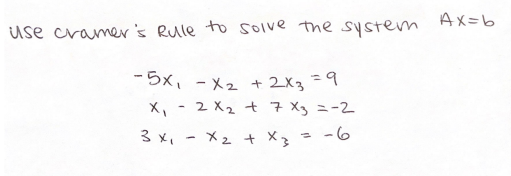 use cramer's Rule to solve the system Ax=b
-5x₁ - x₂ + 2x₃ = 9
x₁ - 2x₂ + 7x₃ = -2
3x₁ - x₂ + x₃ = -6